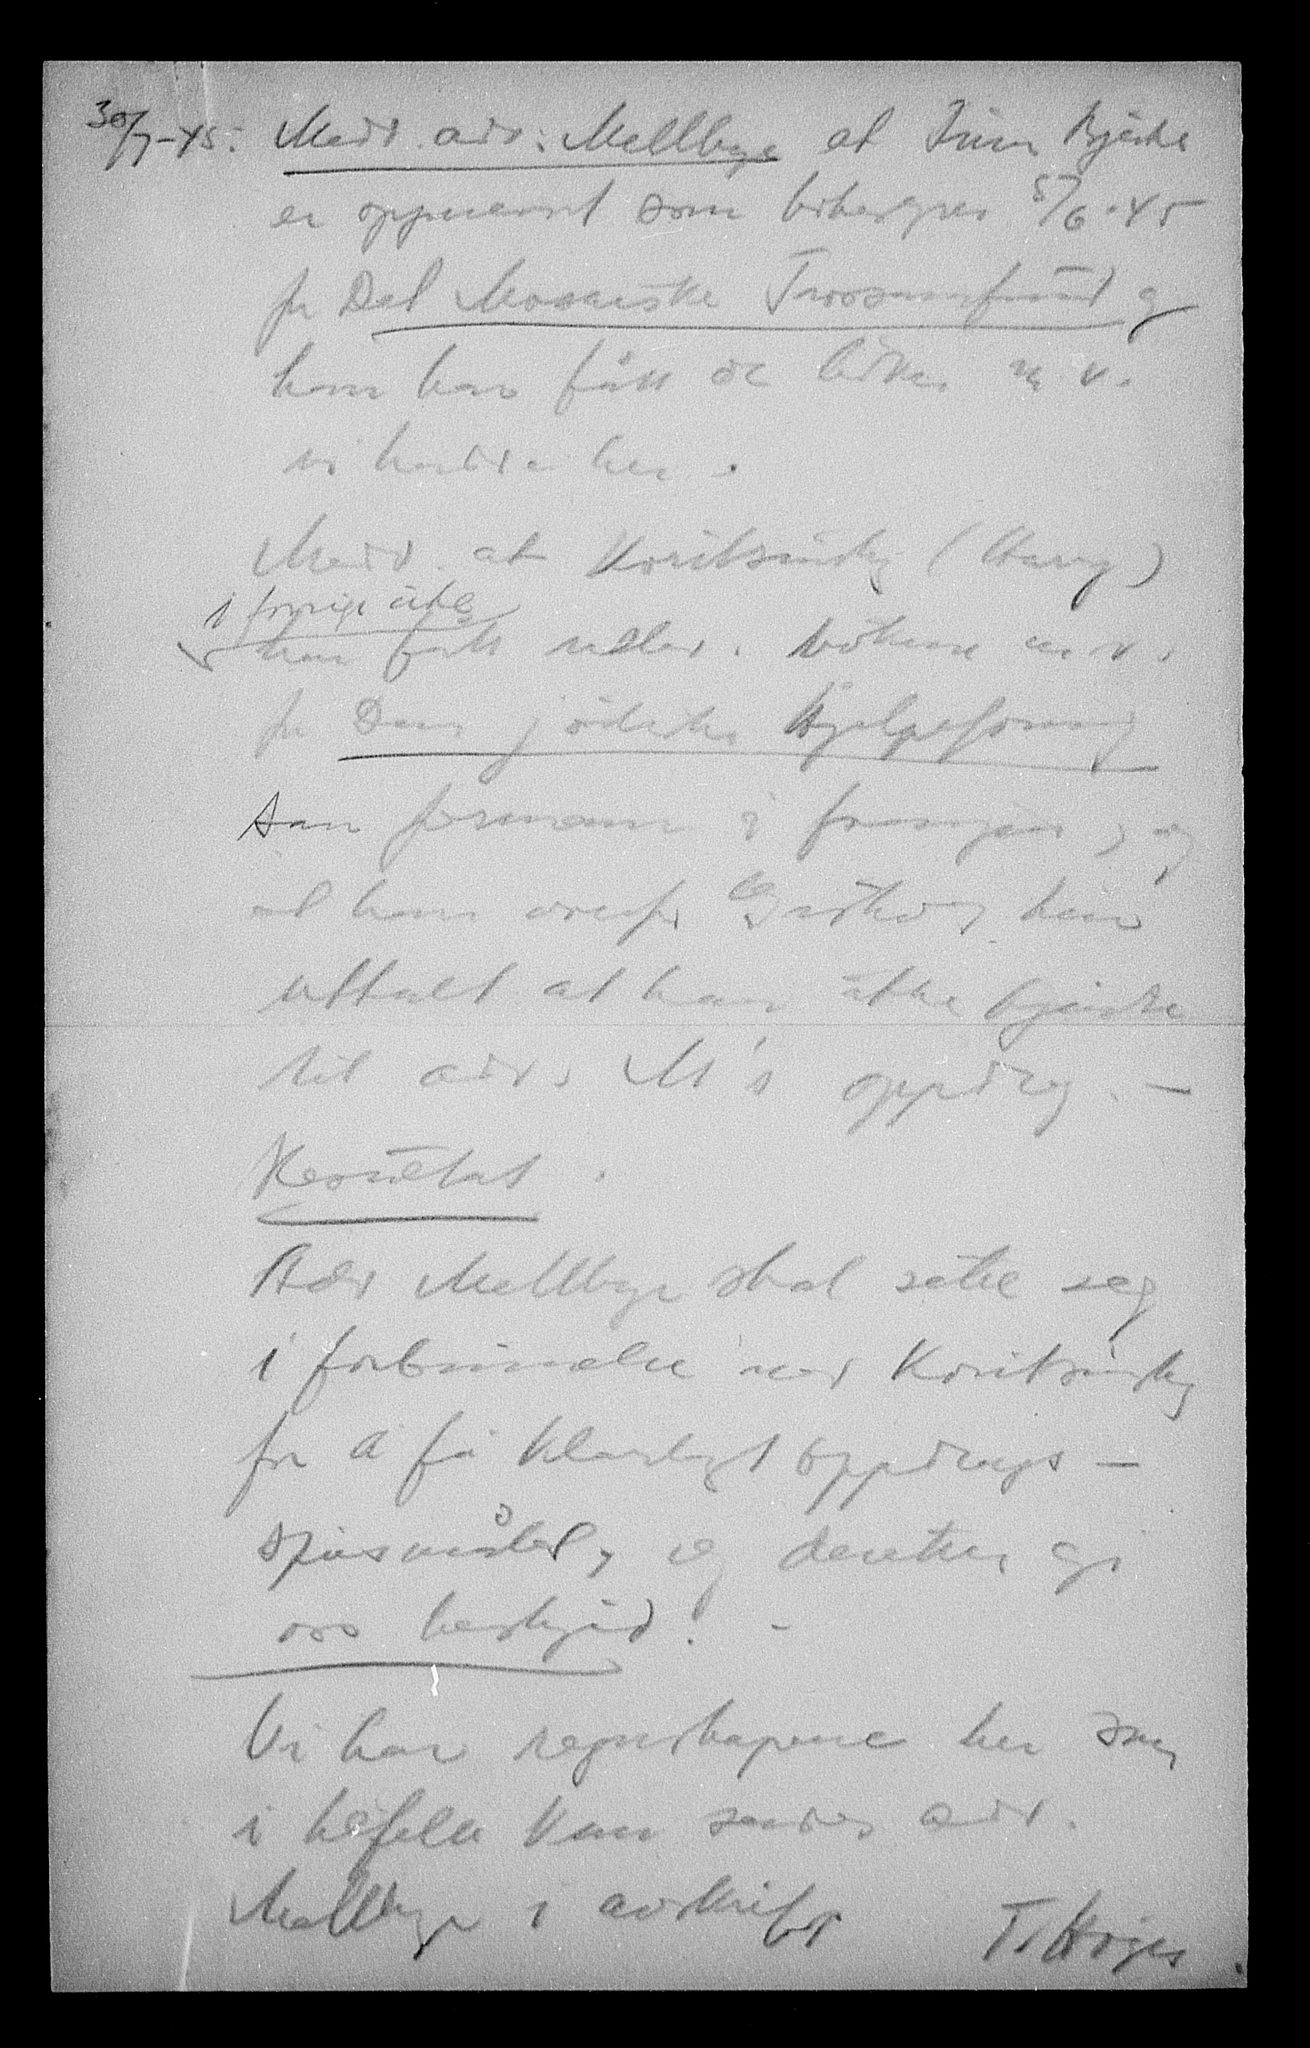 30/7-45: Medd. adv. Mellbye at
er oppnevnt som bobestyrer 5/6-45
for Det Mosaiske Trossamfund og
han har fått de bøker m.v.
vi hadde her.
Medd. at Koritzinsky (Harry)
i forrige uke
har fått utlev. bøkene m.v.
for Den jødiske Hjelpeforening
som formann i foreningen, og
at han har
uttalt at han ikke kjente
til adv. M's oppdrag. —
Resultat.
Adv Mellbye skal sette seg
i forbindelse med Koritzinsky
for å få klarlagt oppdrags-
spørsmålet, og deretter gi
oss beskjed! -
Vi har regnskapene her som
i tilfelle kan sendes adv.
Mellbye i avskrift